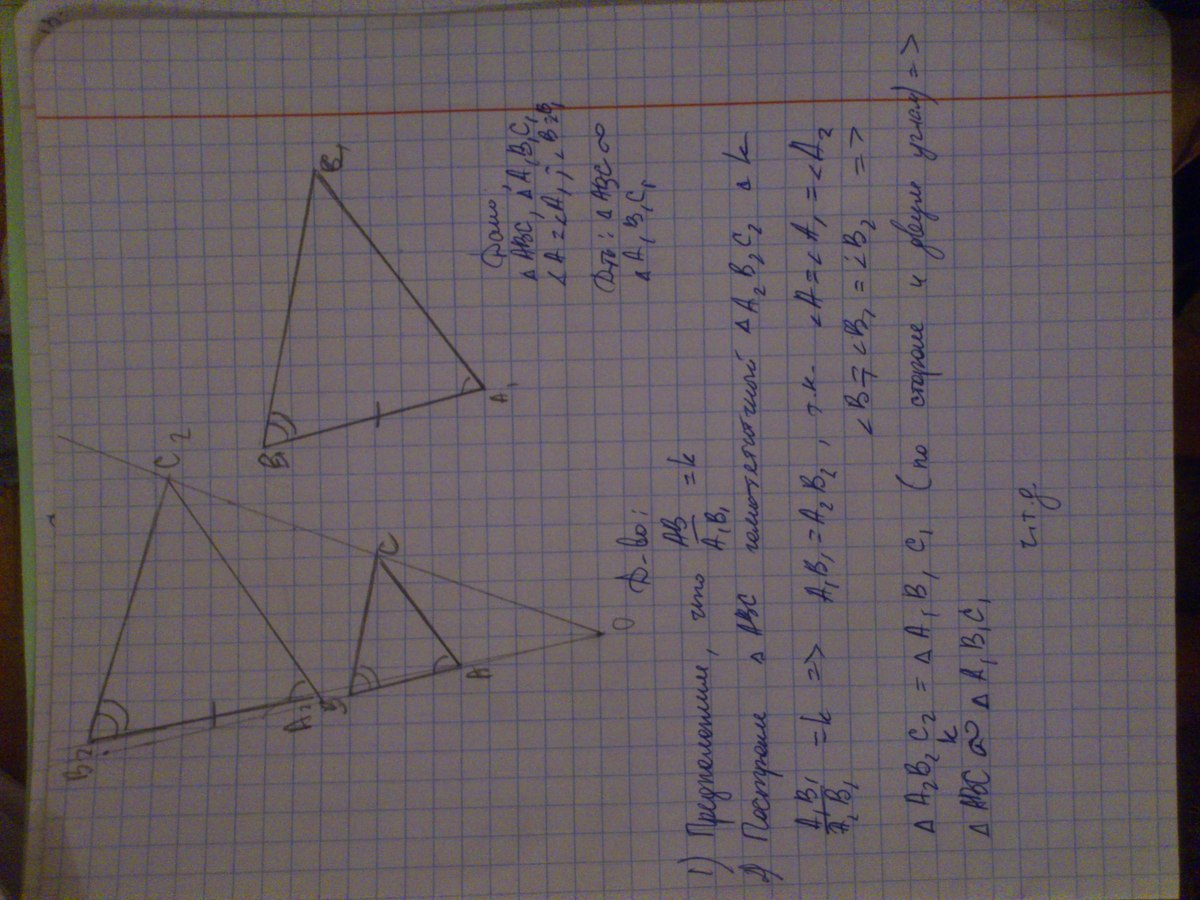 B₂
C₂
A₂
B
C
A
O
B₁
B₁
A₁
Дано:
△ABC, △A₁B₁C₁
∠A=∠A₁; ∠B=B₁
Д-ть: △ABC ∾
△A₁B₁C₁
Д-во:
1) Предположим, что AB/A₁B₁ = k
2) Построим △ABC гомотетичный △A₂B₂C₂ △ k
A₁B₁/A₂B₁ = k => A₁B₁ = A₂B₂, т.к. ∠A=∠A₁=∠A₂
∠B=∠B₁=∠B₂ =>
△A₂B₂C₂ = △A₁B₁C₁ (по стороне и двум углам) =>
△ABC ∾ᵏ △A₁B₁C₁
ч.т.д.